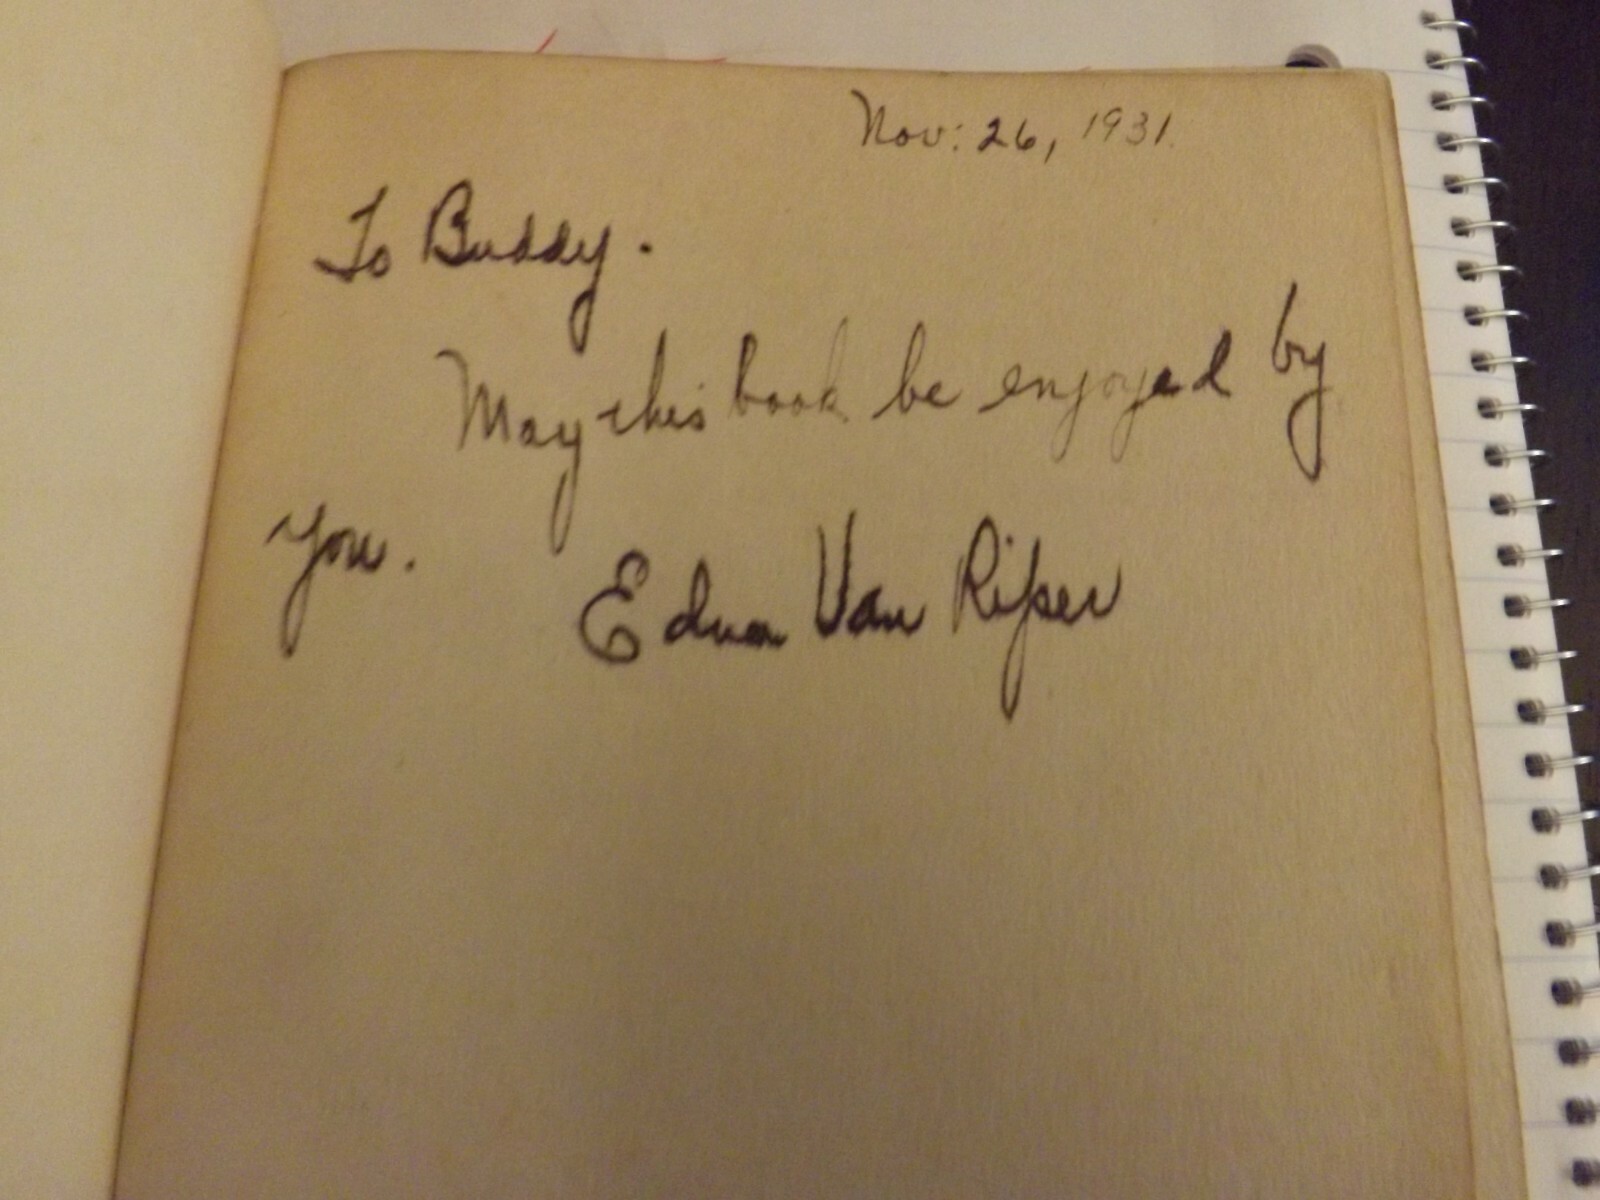 Nov: 26, 1931.
To Buddy.
May this book be enjoyed by
you.
Edna Van Riper